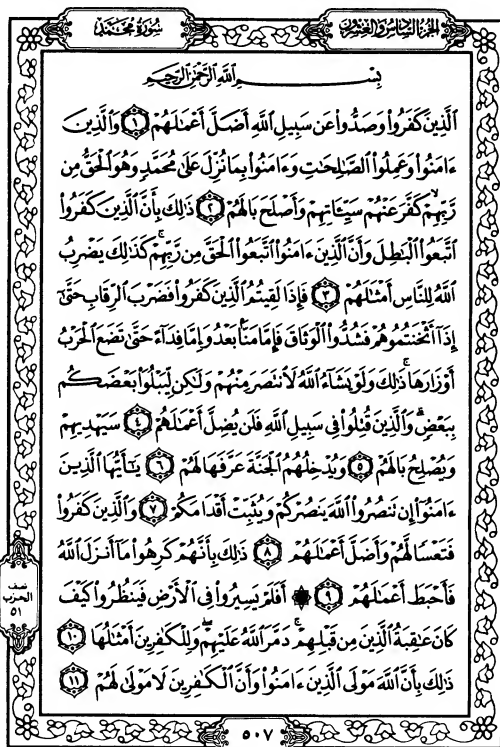 سُورَةُ مُحَمَّدٍ
الجُزْءُ السَّادِسُ وَالعِشْرُونَ
بِسْمِ ٱللَّهِ ٱلرَّحْمَٰنِ ٱلرَّحِيمِ
ٱلَّذِينَ كَفَرُوا۟ وَصَدُّوا۟ عَن سَبِيلِ ٱللَّهِ أَضَلَّ أَعْمَٰلَهُمْ ١ وَٱلَّذِينَ
ءَامَنُوا۟ وَعَمِلُوا۟ ٱلصَّٰلِحَٰتِ وَءَامَنُوا۟ بِمَا نُزِّلَ عَلَىٰ مُحَمَّدٍ وَهُوَ ٱلْحَقُّ مِن
رَّبِّهِمْ ۙ كَفَّرَ عَنْهُمْ سَيِّـَٔاتِهِمْ وَأَصْلَحَ بَالَهُمْ ٢ ذَٰلِكَ بِأَنَّ ٱلَّذِينَ كَفَرُوا۟
ٱتَّبَعُوا۟ ٱلْبَٰطِلَ وَأَنَّ ٱلَّذِينَ ءَامَنُوا۟ ٱتَّبَعُوا۟ ٱلْحَقَّ مِن رَّبِّهِمْ ۚ كَذَٰلِكَ يَضْرِبُ
ٱللَّهُ لِلنَّاسِ أَمْثَٰلَهُمْ ٣ فَإِذَا لَقِيتُمُ ٱلَّذِينَ كَفَرُوا۟ فَضَرْبَ ٱلرِّقَابِ حَتَّىٰٓ
إِذَآ أَثْخَنتُمُوهُمْ فَشُدُّوا۟ ٱلْوَثَاقَ فَإِمَّا مَنًّۢا بَعْدُ وَإِمَّا فِدَآءً حَتَّىٰ تَضَعَ ٱلْحَرْبُ
أَوْزَارَهَا ۚ ذَٰلِكَ وَلَوْ يَشَآءُ ٱللَّهُ لَٱنتَصَرَ مِنْهُمْ وَلَٰكِن لِّيَبْلُوَا۟ بَعْضَكُم
بِبَعْضٍ ۗ وَٱلَّذِينَ قُتِلُوا۟ فِى سَبِيلِ ٱللَّهِ فَلَن يُضِلَّ أَعْمَٰلَهُمْ ٤ سَيَهْدِيهِمْ
وَيُصْلِحُ بَالَهُمْ ٥ وَيُدْخِلُهُمُ ٱلْجَنَّةَ عَرَّفَهَا لَهُمْ ٦ يَٰٓأَيُّهَا ٱلَّذِينَ
ءَامَنُوٓا۟ إِن تَنصُرُوا۟ ٱللَّهَ يَنصُرْكُمْ وَيُثَبِّتْ أَقْدَامَكُمْ ٧ وَٱلَّذِينَ كَفَرُوا۟
فَتَعْسًا لَّهُمْ وَأَضَلَّ أَعْمَٰلَهُمْ ٨ ذَٰلِكَ بِأَنَّهُمْ كَرِهُوا۟ مَآ أَنزَلَ ٱللَّهُ
فَأَحْبَطَ أَعْمَٰلَهُمْ ٩ ۞ أَفَلَمْ يَسِيرُوا۟ فِى ٱلْأَرْضِ فَيَنظُرُوا۟ كَيْفَ
كَانَ عَٰقِبَةُ ٱلَّذِينَ مِن قَبْلِهِمْ ۚ دَمَّرَ ٱللَّهُ عَلَيْهِمْ ۖ وَلِلْكَٰفِرِينَ أَمْثَٰلُهَا ١٠
ذَٰلِكَ بِأَنَّ ٱللَّهَ مَوْلَى ٱلَّذِينَ ءَامَنُوا۟ وَأَنَّ ٱلْكَٰفِرِينَ لَا مَوْلَىٰ لَهُمْ ١١
نصف
الحزب
٥١
٥٠٧